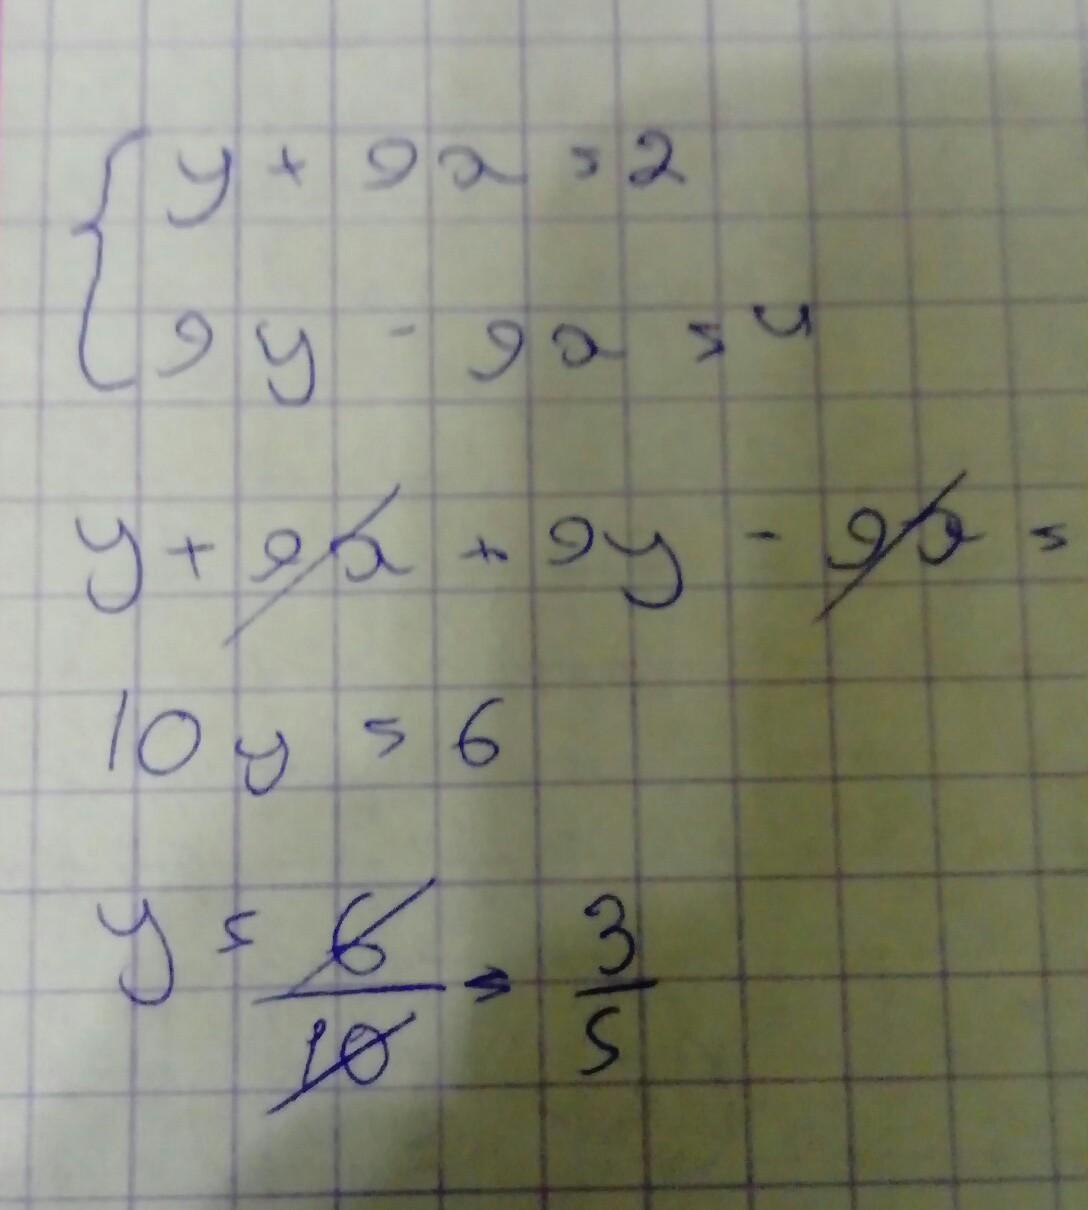 y + 9a = 2
9y - 9a = 4
y + 9a + 9y - 9a =
10y = 6
y = 6/10 = 3/5